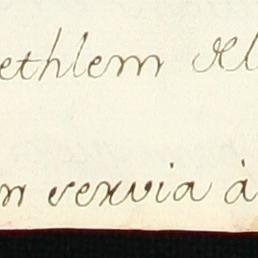 ethlem El
n servia à